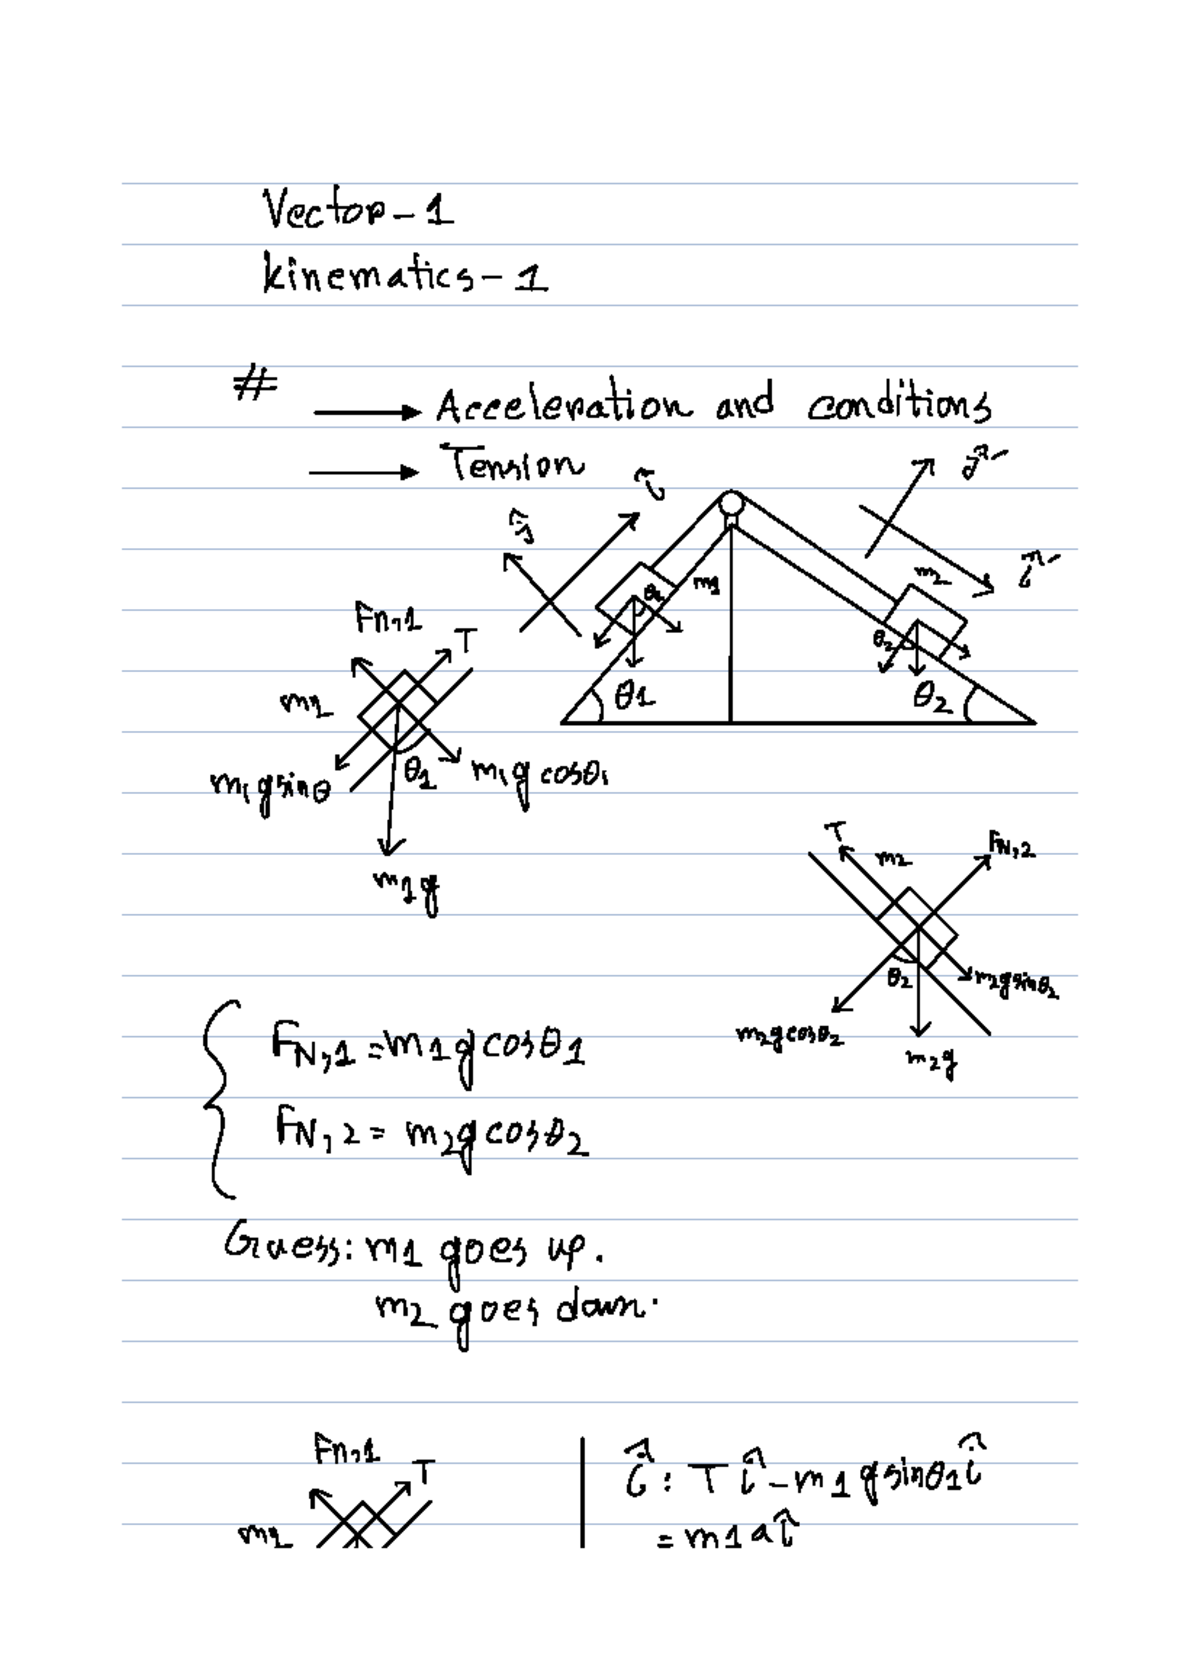 Vector-1
kinematics-1
#
→ Acceleration and conditions
→ Tension
î
ĵ
ĵ
î
m1
m2
θ2
θ1
θ2
Fn,1
T
m1
m1gsinθ
θ1
m1gcosθ1
m1g
T
m2
FN,2
θ2
m2gsinθ2
m2gcosθ2
m2g
FN,1 = m1gcosθ1
FN,2 = m2gcosθ2
Guess: m1 goes up.
m2 goes down.
Fn,1
T
m1
î : T î - m1gsinθ1 î
= m1aî